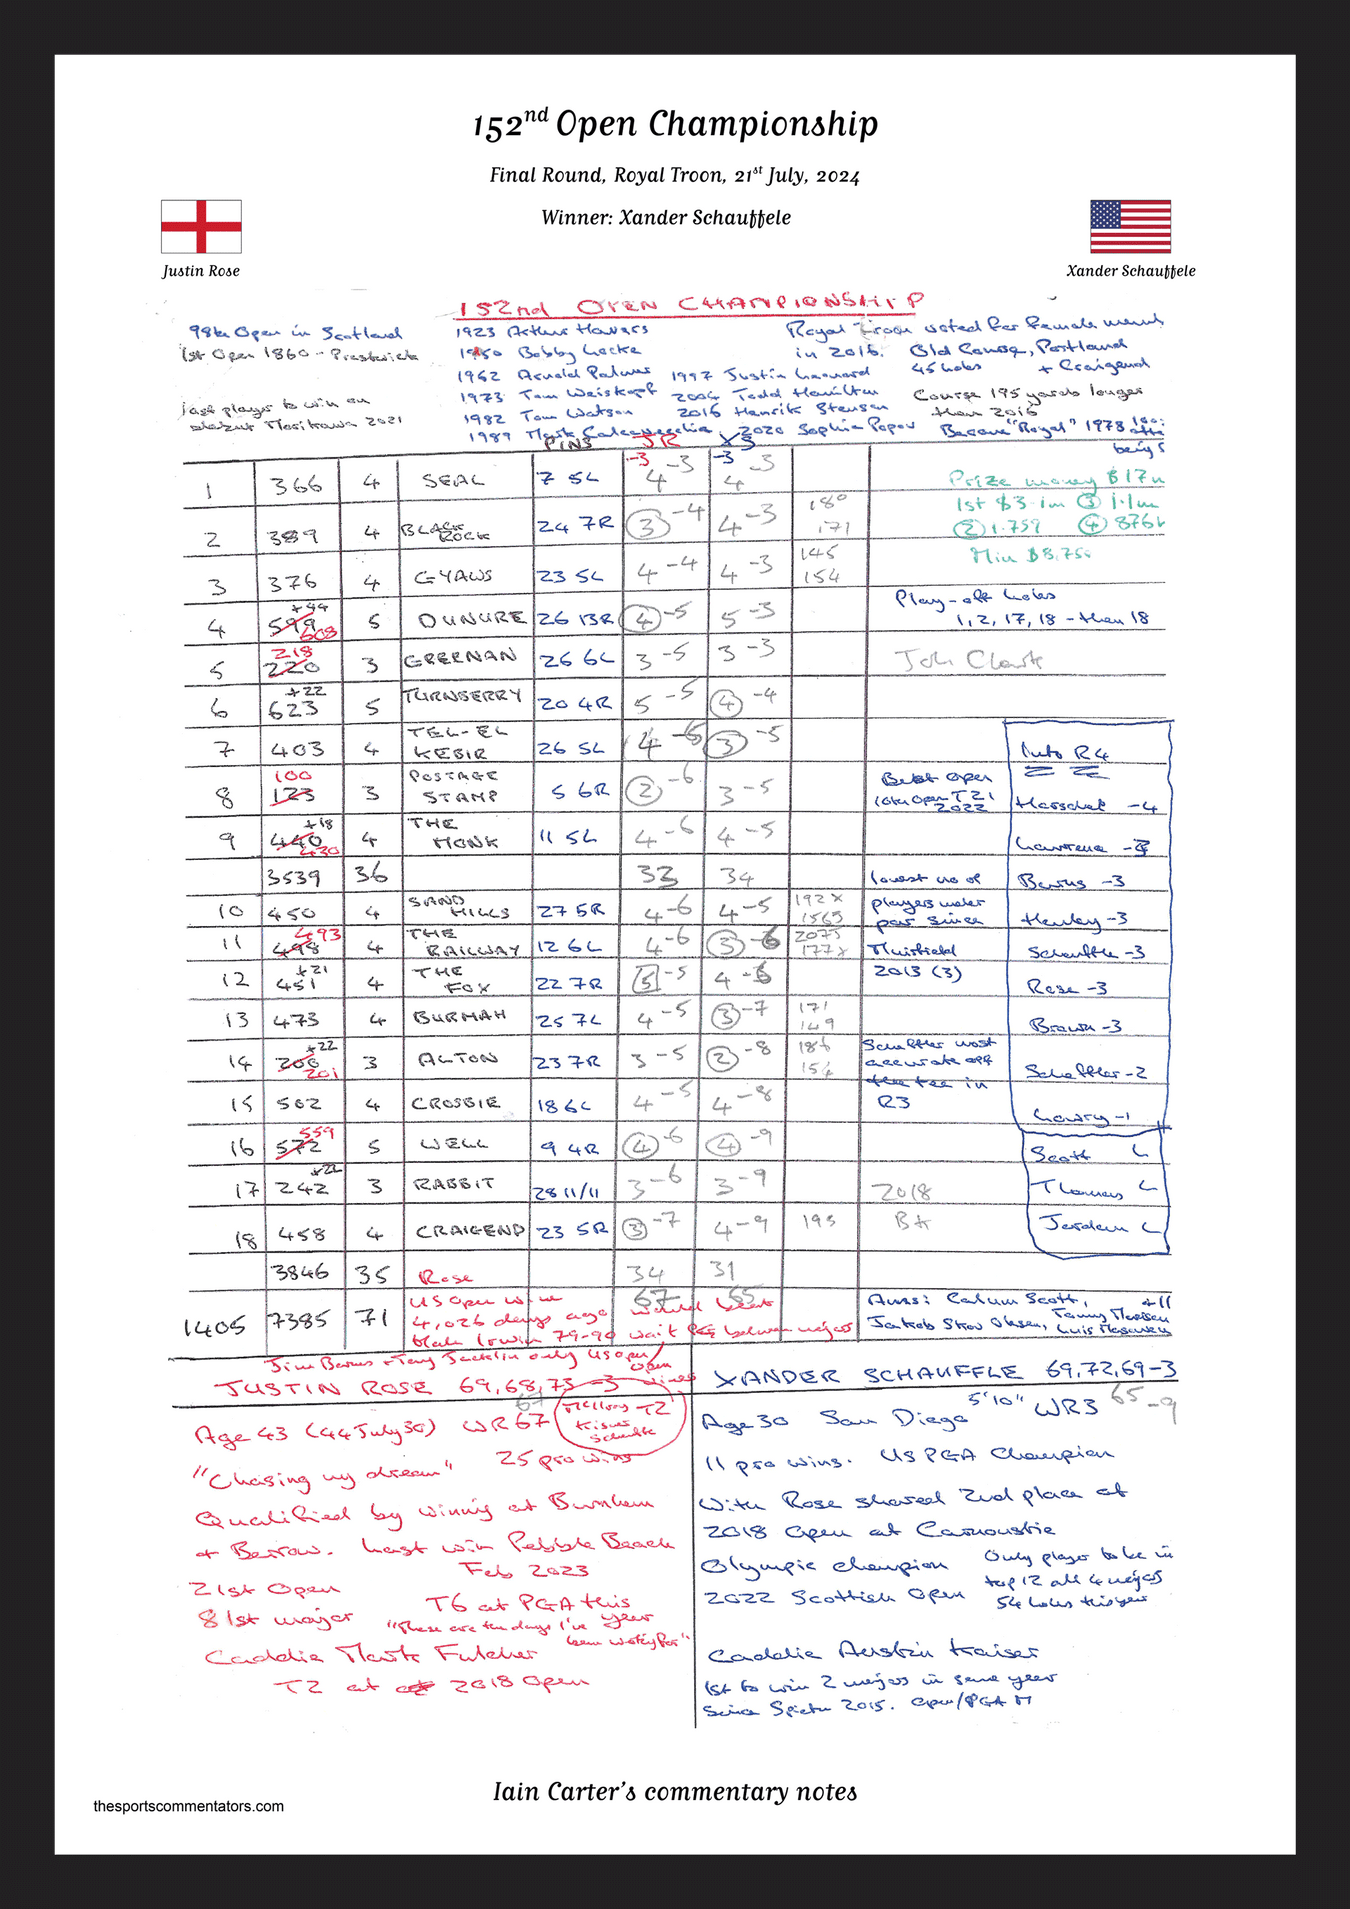 152nd Open Championship
Final Round, Royal Troon, 21st July, 2024
Winner: Xander Schauffele
Justin Rose
Xander Schauffele
152nd OPEN CHAMPIONSHIP
98th Open in Scotland
1st Open 1860 - Prestwick
Last player to win on
debut Morikawa 2021
1923 Arthur Havers
1950 Bobby Locke
1962 Arnold Palmer
1973 Tom Weiskopf
1982 Tom Watson
1989 Mark Calcavecchia
1997 Justin Leonard
2004 Todd Hamilton
2016 Henrik Stenson
2020 Sophia Popov
Royal Troon voted for female memb
in 2016. Old Course, Portland
45 holes + Craigend
Course 195 yards longer
than 2016
Became "Royal" 1978 100
after
being
PINS JR XS
-3 -3
1 366 4 SEAL 7 5L 4 -3 4 -3
2 389 4 BLACK ROCK 24 7R 3 -4 4 -3 180 171
3 376 4 GYAWS 23 5L 4 -4 4 -3 145 154
4 599 +44 608 5 DUNURE 26 13R 4 -5 5 -3
5 220 218 3 GREENAN 26 6L 3 -5 3 -3
6 623 +22 5 TURNBERRY 20 4R 5 -5 4 -4
7 403 4 TEL-EL KEBIR 26 5L 4 -5 3 -5
8 123 100 3 POSTAGE STAMP 5 6R 2 -6 3 -5
9 440 +18 430 4 THE MONK 11 5L 4 -6 4 -5
3539 36 33 34
10 450 4 SAND HILLS 27 5R 4 -6 4 -5 192x 1565
11 498 493 4 THE RAILWAY 12 6L 4 -6 3 -6 2075 177x
12 451 +21 4 THE FOX 22 7R 5 -5 4 -6
13 473 4 BURMAH 25 7L 4 -5 3 -7 171 149
14 200 +22 201 3 AILTON 23 7R 3 -5 2 -8 186 154
15 502 4 CROSBIE 18 6L 4 -5 4 -8
16 572 559 5 WELL 9 4R 4 -6 4 -9
17 242 +22 3 RABBIT 28 11/11 3 -6 3 -9
18 458 4 CRAIGEND 23 5R 3 -7 4 -9 193
3846 35 Rose 34 31
1405 7385 71 67 65
US Open win
4,026 days ago would beat
Hale Irwin 79-90 wait for between majors
Prize money $17m
1st $3.1m 3 1.1m
2 1.759 4 876k
Min $8,750
Play-off holes
1, 2, 17, 18 - then 18
John Clark
Best open
2022
Lowest no of
players under
par since
Muirfield
2013 (3)
Scheffler most
accurate off
the tee in
R3
2018
Into R4
Horschel -4
Lawrence -3
Burns -3
Henley -3
Schauffle -3
Rose -3
Brown -3
Scheffler -2
Lowry -1
Scott L
Thomas L
Jordan L
Ams: Calum Scott, +11
Tommy Morrison
Jakob Skov Olesen, Luis Masaveu
Jim Barnes + Tony Jacklin only US Open/
Open
JUSTIN ROSE 69,68,73 -3
67
XANDER SCHAUFFLE 69,72,69 -3
65 -9
Age 43 (44 July 30) WR67
Molinari T2
Kisner
Schauffle
"Chasing my dream" 25 pro wins
Qualified by winning at Burnham
+ Berrow. Last win Pebble Beach
Feb 2023
21st Open
81st major
T6 at PGA this
year
"These are the days I've
been waiting for"
Caddie Mark Fulcher
T2 at 2018 Open
Age 30 San Diego 5'10" WR3
11 pro wins. US PGA Champion
With Rose shared 2nd place at
2018 Open at Carnoustie
Olympic champion
2022 Scottish Open
Only player to be in
top 12 all 4 majors
54 holes this year
Caddie Austin Kaiser
1st to win 2 majors in same year
since Spieth 2015. Open/PGA
Iain Carter's commentary notes
thesportscommentators.com